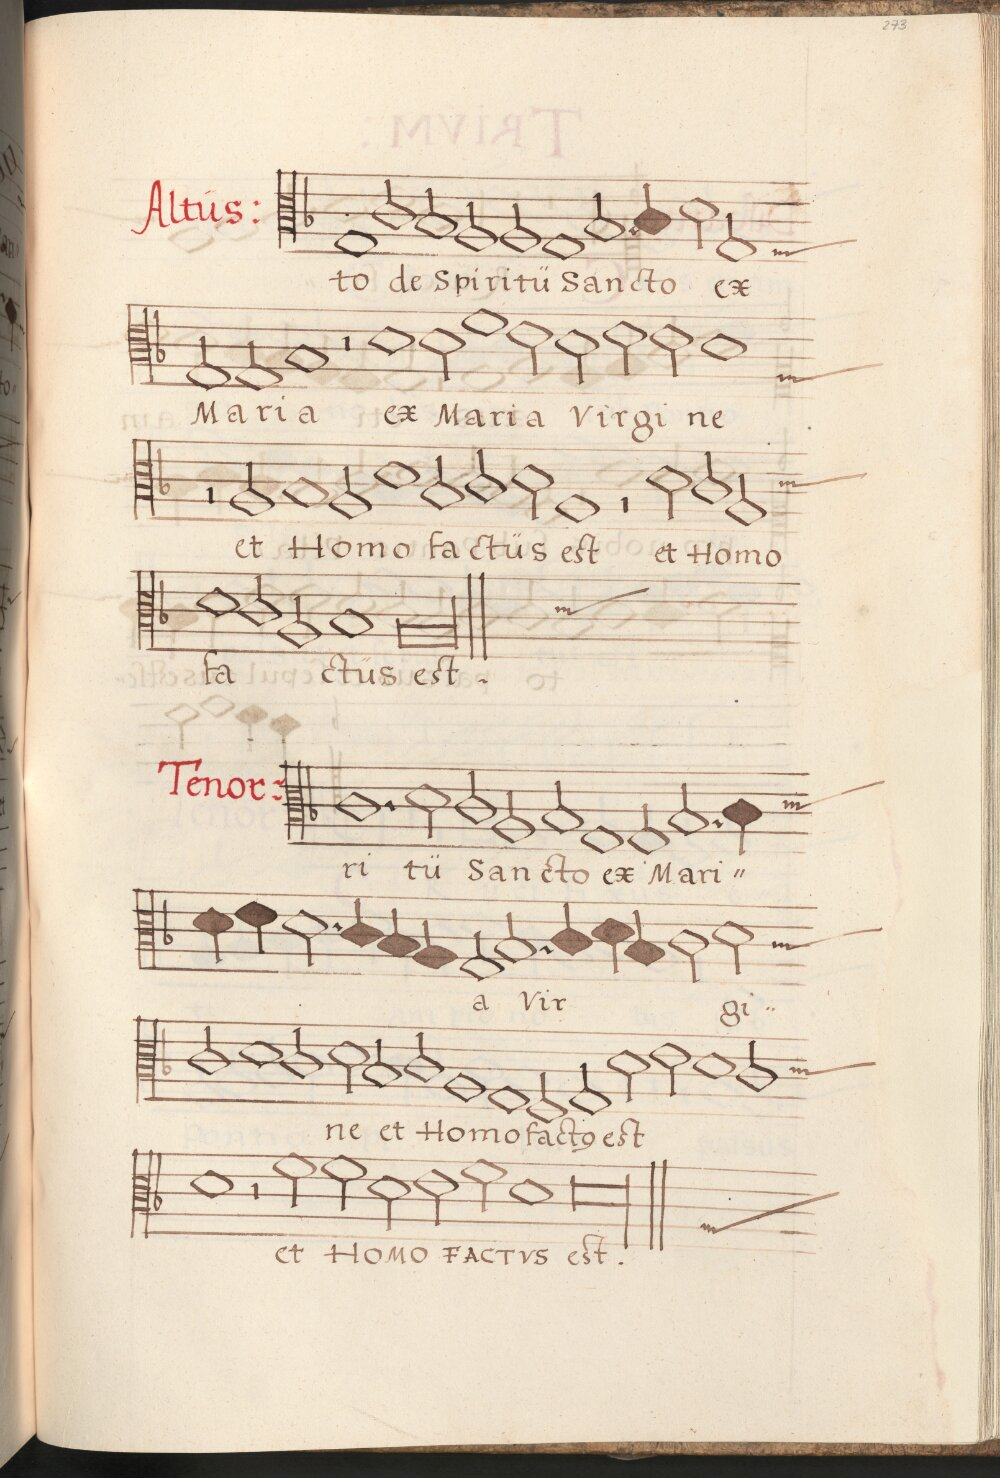 273
Altus:
to de Spiritü Sancto ex
Maria ex Maria Virgi ne
et Homo factüs est et Homo
fa ctüs est.
Tenor:
ri tü Sancto ex Mari"
a Vir gi"
ne et Homo factꝯ est
et HOMO FACTVS est.